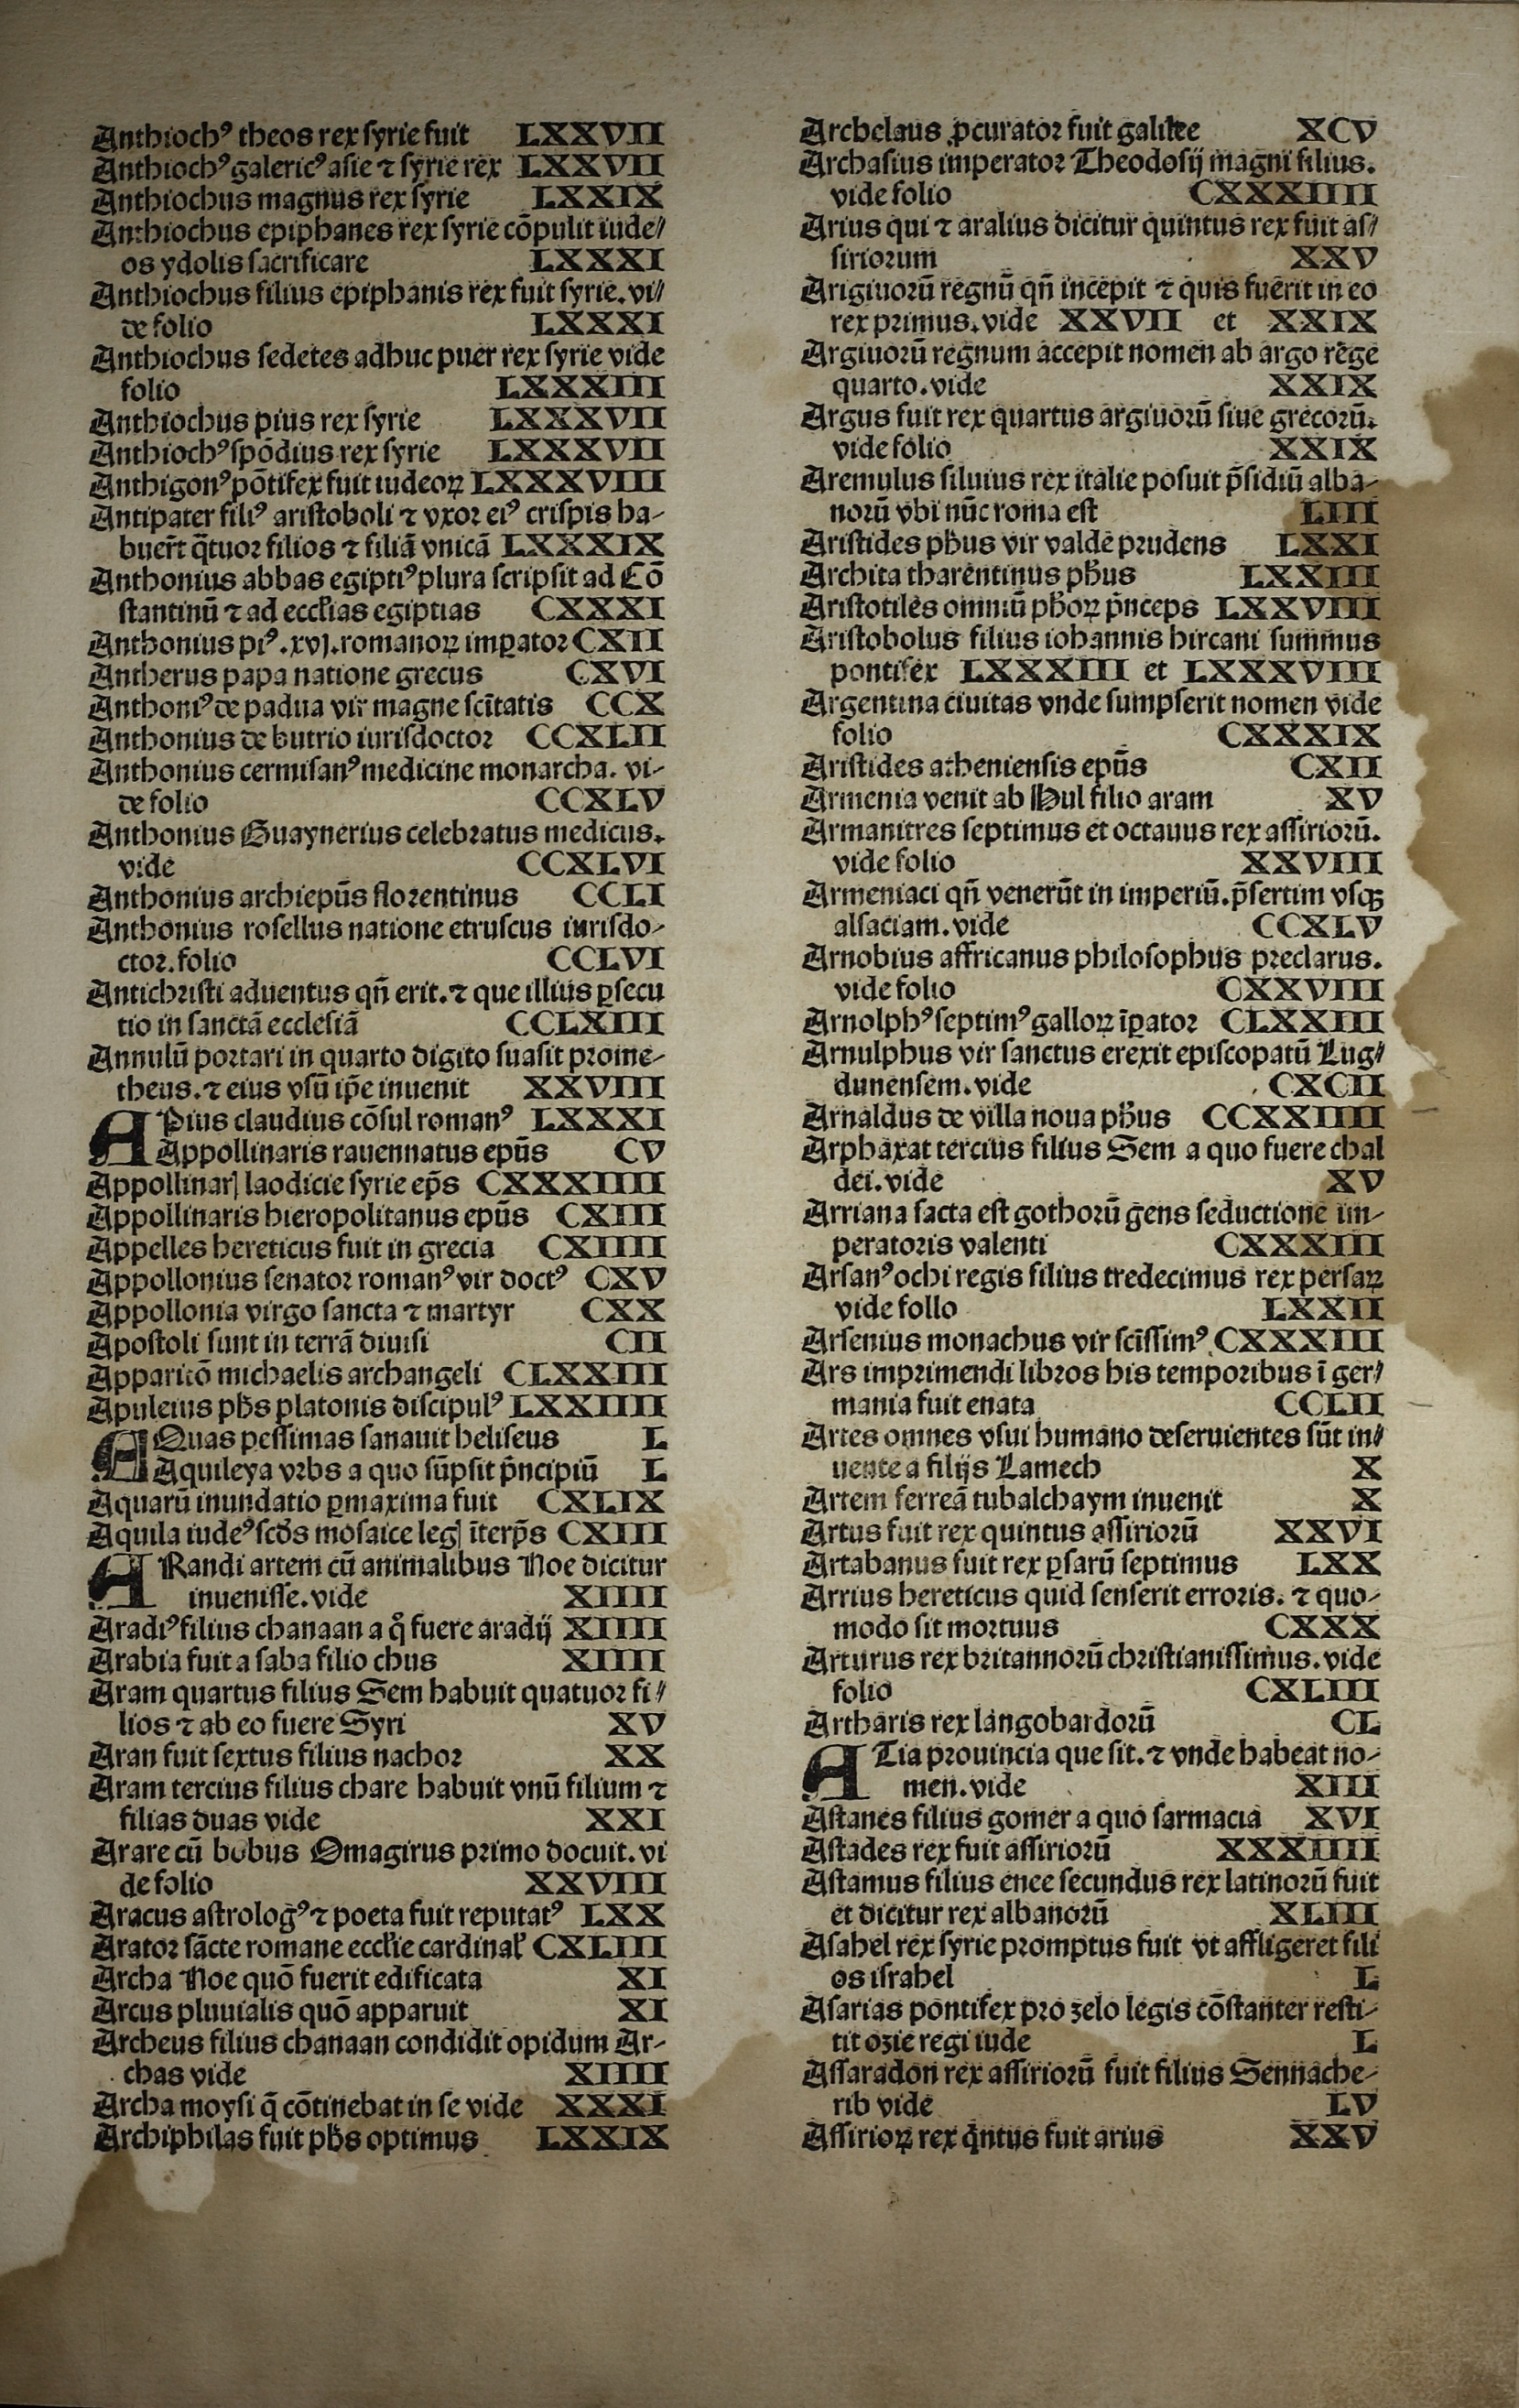 Anthiochꝰ theos rex syrie fuit LXXVII
Anthiochꝰ galericꝰ asie ⁊ syrie rex LXXVII
Anthiochus magnus rex syrie LXXIX
Anthiochus epiphanes rex syrie cōpulit iude/
os ydolis sacrificare LXXXI
Anthiochus filius epiphanis rex fuit syrie. vi/
de folio LXXXI
Anthiochus sedetes adhuc puer rex syrie vide
folio LXXXIII
Anthiochus pius rex syrie LXXXVII
Anthiochꝰ spōdius rex syrie LXXXVII
Anthigonꝰ pōtifex fuit iudeoꝝ LXXXVIII
Antipater filiꝰ aristoboli ⁊ vxor eiꝰ crispis ha-
buer̃t q̃tuor filios ⁊ filiā vnicā LXXXIX
Anthonius abbas egiptiꝰ plura scripsit ad Cō
stantinū ⁊ ad eccl̃ias egiptias CXXXI
Anthonius piꝰ .xvj. romanoꝝ imꝑator CXII
Antherus papa natione grecus CXVI
Anthoniꝰ de padua vir magne scītatis CCX
Anthonius de butrio iurisdoctor CCXLII
Anthonius cermisanꝰ medicine monarcha. vi-
de folio CCXLV
Anthonius Guaynerius celebratus medicus.
vide CCXLVI
Anthonius archiep̃us florentinus CCLI
Anthonius rosellus natione etruscus iurisdo-
ctor. folio CCLVI
Antichristi aduentus qñ erit. ⁊ que illius ꝑsecu
tio in sanctā ecclesiā CCLXIII
Annulū portari in quarto digito suasit prome-
theus. ⁊ eius vsū ip̃e inuenit XXVIII
APius claudius cōsul romanꝰ LXXXI
Appollinaris rauennatus ep̃us CV
Appollinarꝭ laodicie syrie ep̃s CXXXIIII
Appollinaris hieropolitanus ep̃us CXIII
Appelles hereticus fuit in grecia CXIIII
Appollonius senator romanꝰ vir doctꝰ CXV
Appollonia virgo sancta ⁊ martyr CXX
Apostoli sunt in terrā diuisi CII
Apparitō michaelis archangeli CLXXIII
Apuleius ph̃s platonis discipulꝰ LXXIIII
AQuas pessimas sanauit heliseus L
Aquileya vrbs a quo sūpsit p̃ncipiū L
Aquarū inundatio ꝑmaxima fuit CXLIX
Aquila iudeꝰ scd̃s mosaice legꝭ īterp̃s CXIII
ARandi artem cū animalibus Noe dicitur
inuenisse. vide XIIII
Aradiꝰ filius chanaan a q̊ fuere aradij XIIII
Arabia fuit a saba filio chus XIIII
Aram quartus filius Sem habuit quatuor fi/
lios ⁊ ab eo fuere Syri XV
Aran fuit sextus filius nachor XX
Aram tercius filius chare habuit vnū filium ⁊
filias duas vide XXI
Arare cū bobus Omagirus primo docuit. vi
de folio XXVIII
Aracus astrologꝰ ⁊ poeta fuit reputatꝰ LXX
Arator sācte romane eccl̃ie cardinal̃ CXLIII
Archa Noe quō fuerit edificata XI
Arcus pluuialis quō apparuit XI
Archeus filius chanaan condidit opidum Ar-
chas vide XIIII
Archa moysi q̃ cōtinebat in se vide XXXI
Archiphilas fuit ph̃s optimus LXXIX
Archelaus ꝓcurator fuit galilee XCV
Archasius imperator Theodosij magni filius.
vide folio CXXXIIII
Arius qui ⁊ aralius dicitur quintus rex fuit as/
siriorum XXV
Arigiuorū regnū qñ incepit ⁊ quis fuerit in eo
rex primus. vide XXVII et XXIX
Argiuorū regnum accepit nomen ab argo rege
quarto. vide XXIX
Argus fuit rex quartus argiuorū siue grecorū.
vide folio XXIX
Aremulus siluius rex italie posuit p̃sidiū alba-
norū vbi nūc roma est LIII
Aristides ph̃us vir valde prudens LXXI
Archita tharentinus ph̃us LXXIII
Aristotiles omniū ph̃oꝝ p̃nceps LXXVIII
Aristobolus filius iohannis hircani summus
pontifex LXXXIII et LXXXVIII
Argentina ciuitas vnde sumpserit nomen vide
folio CXXXIX
Aristides atheniensis ep̃us CXII
Armenia venit ab Hul filio aram XV
Armanitres septimus et octauus rex assiriorū.
vide folio XXVIII
Armeniaci qñ venerūt in imperiū. p̃sertim vsqꝫ
alsaciam. vide CCXLV
Arnobius affricanus philosophus preclarus.
vide folio CXXVIII
Arnolphꝰ septimꝰ galloꝝ īꝑator CLXXIII
Arnulphus vir sanctus erexit episcopatū Lug/
dunensem. vide CXCII
Arnaldus de villa noua ph̃us CCXXIIII
Arphaxat tercius filius Sem a quo fuere chal
dei. vide XV
Arriana facta est gothorū gens seductione im-
peratoris valenti CXXXIII
Arsanꝰ ochi regis filius tredecimus rex persaꝝ
vide follo LXXII
Arsenius monachus vir scīssimꝰ CXXXIII
Ars imprimendi libros his temporibus ī ger/
mania fuit enata CCLII
Artes omnes vsui humano deseruientes sūt in/
uente a filijs Lamech X
Artem ferreā tubalchaym inuenit X
Artus fuit rex quintus assiriorū XXVI
Artabanus fuit rex ꝑsarū septimus LXX
Arrius hereticus quid senserit erroris. ⁊ quo-
modo sit mortuus CXXX
Arturus rex britannorū christianissimus. vide
folio CXLIII
Artharis rex langobardorū CL
ATia prouincia que sit. ⁊ vnde habeat no-
men. vide XIII
Astanes filius gomer a quo sarmacia XVI
Astades rex fuit assiriorū XXXIIII
Astamus filius enee secundus rex latinorū fuit
et dicitur rex albanorū XLIII
Asahel rex syrie promptus fuit vt affligeret fili
os israhel L
Asarias pontifex pro zelo legis cōstanter resti-
tit ozie regi iude L
Assaradon rex assiriorū fuit filius Sennache-
rib vide LV
Assirioꝝ rex q̃ntus fuit arius XXV